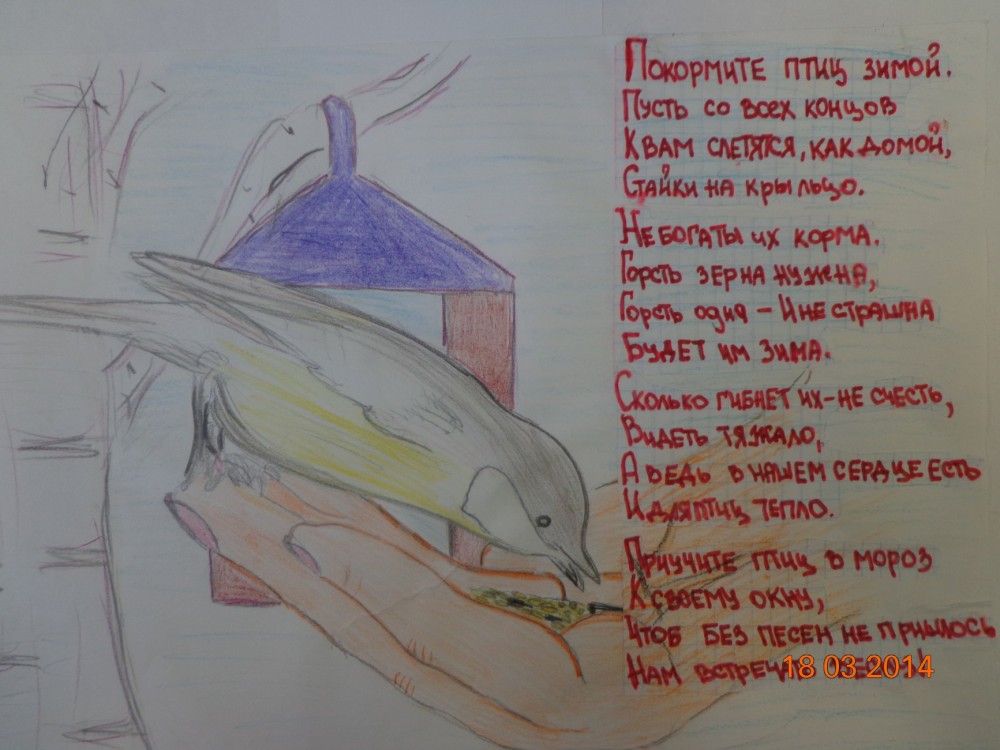 Покормите птиц зимой.
Пусть со всех концов
К вам слетятся, как домой,
Стайки на крыльцо.
Не богаты их корма.
Горсть зерна нужна,
Горсть одна – И не страшна
Будет им зима.
Сколько гибнет их-не счесть,
Видеть тяжало,
А ведь в нашем сердце есть
И для птиц тепло.
Приучите птиц в мороз
К своему окну,
Чтоб без песен не пришлось
Нам
18 03 2014